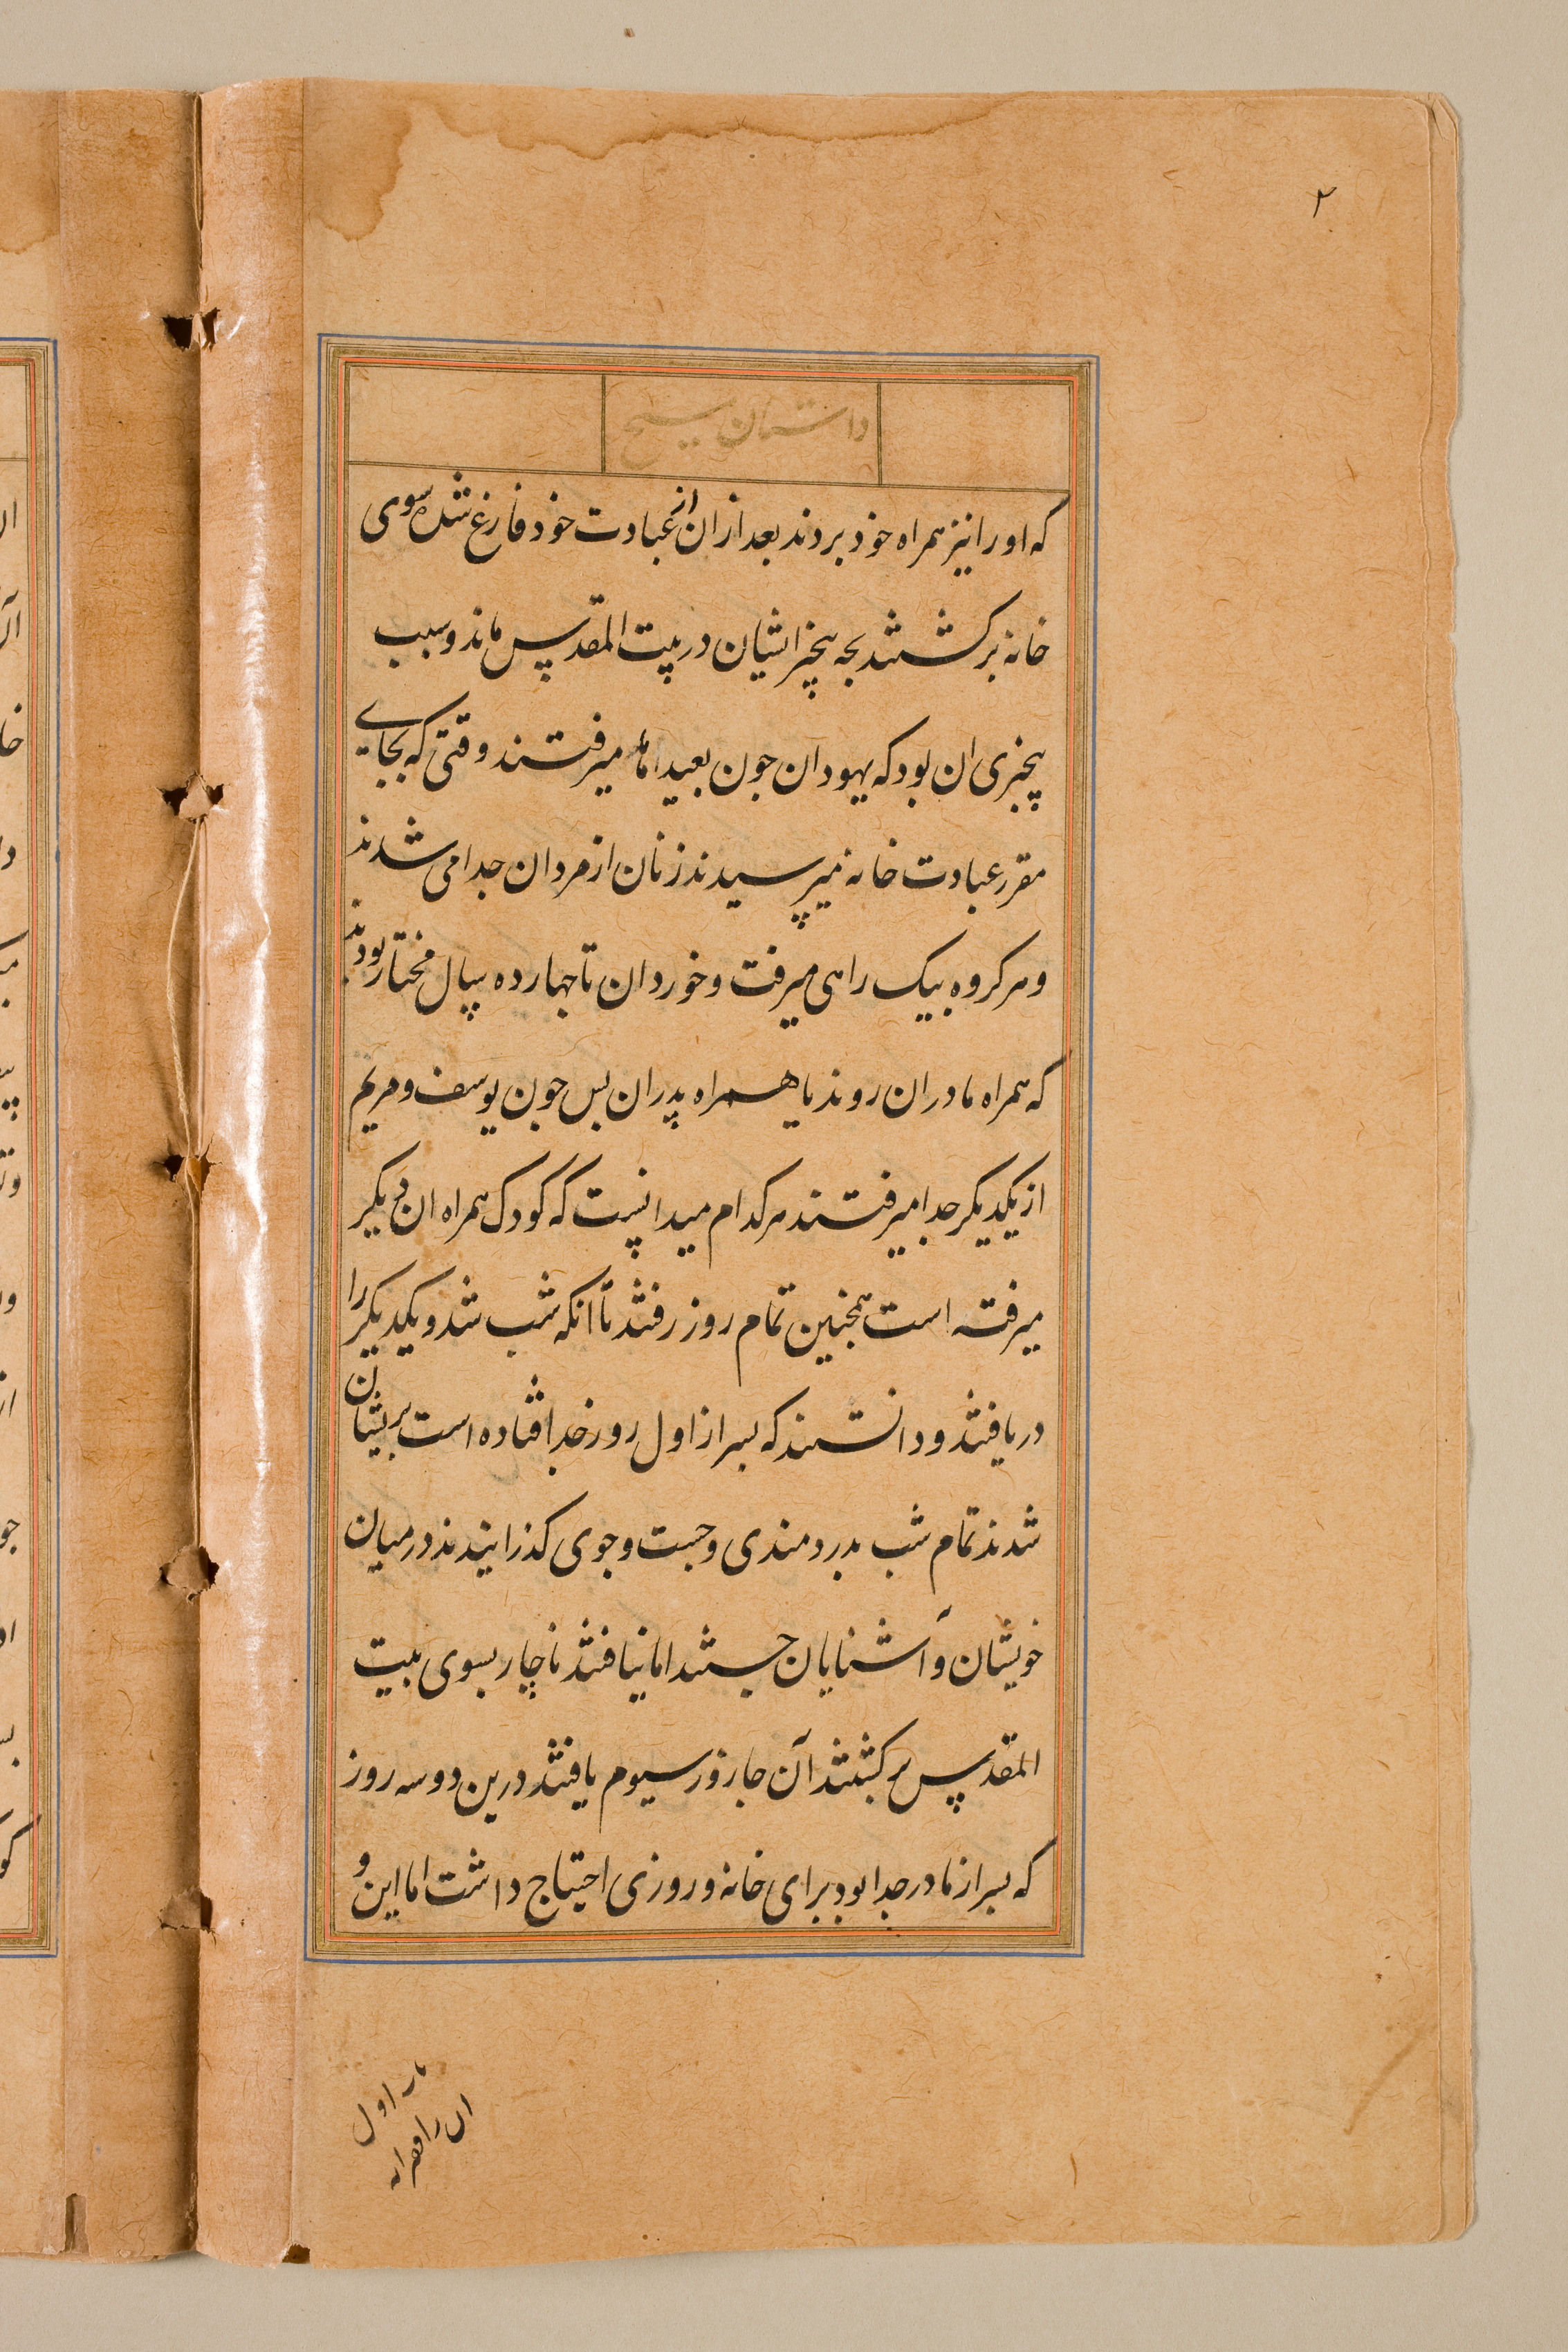 ۲
داستان مسیح
که او را نیز همراه خود بردند بعد ازان از عبادت خود فارغ شده سوی
خانه برکشتند بچه بیخبر ایشان در بیت المقدس ماند و سبب
بیخبری ان بود که یهودان جون بعیدها میرفتند وقتی که بجای
مقرر عبادت خانه میرسیدند زنان از مردان جدا می شدند
و هر کروه بیک راهی میرفت و خوردان تا جهارده سال مختار بودند
که همراه مادران روند یا همراه پدران بس جون یوسف و مریم
از یکدیکر جدا میرفتند هر کدام میدانست که کودک همراه ان دیکر
میرفته است همجنین تمام روز رفتند تا انکه شب شد و یکدیکر را
دریافتند و دانستند که بسر از اول روز جدا افتاده است بریشان
شدند تمام شب بدردمندی و جست و جوی کذرانیدند در میان
خویشان و آشنایان جستند اما نیافتند ناچار بسوی بیت
المقدس برکشتند آن جا روز سیوم یافتند درین دو سه روز
که بسر از مادر جدا بود برای خانه و روزی احتیاج داشت اما این و
اول